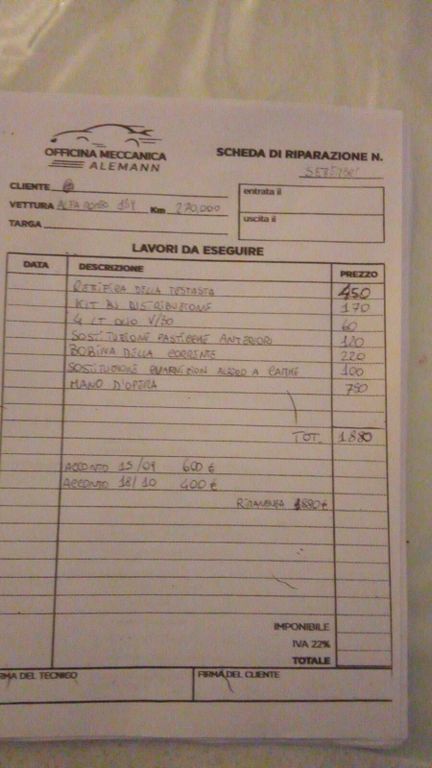 OFFICINA MECCANICA
ALEMANN
SCHEDA DI RIPARAZIONE N.
CLIENTE
entrata il
VETTURA ALFA ROMEO 159 Km 270,000
uscita il
TARGA
LAVORI DA ESEGUIRE
DATA DESCRIZIONE PREZZO
RETIFIRA DELLA TESTASTA 450
KIT DI DISTRIBUZIONE 170
4 LT OLIO V/30 60
SOSTITUZIONE PASTICCHE ANTERIORI 120
BOBINA DELLA CORRENTE 220
SOSTITUZIONE ALBERO A CAMME 100
MANO D'OPERA
TOT. 1880
ACCONTO 15/09 600 €
ACCONTO 18/10 400 €
RIMANENZA
IMPONIBILE
IVA 22%
TOTALE
RMA DEL TECNICO FIRMA DEL CLIENTE